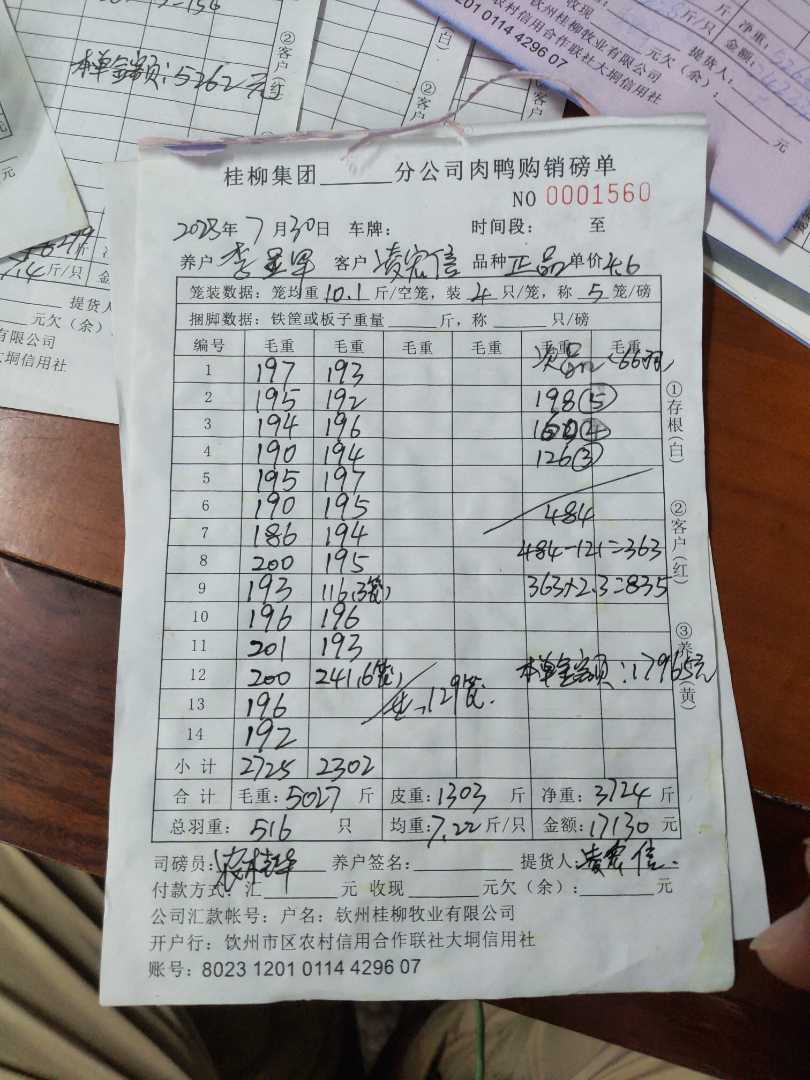 本单金额:5262元
②客户(红
桂柳集团______分公司肉鸭购销磅单
NO 0001560
2023年 7 月 30日 车牌: 时间段: 至
养户 客户 凌宏信 品种 正品 单价4.6
笼装数据: 笼均重 10.1 斤/空笼, 装 4 只/笼, 称 5 笼/磅
捆脚数据: 铁筐或板子重量______斤, 称______只/磅
编号 毛重 毛重 毛重 毛重 毛重 毛重
1 197 193 次品 66羽
2 195 192 198⑤
3 194 196 ④
4 190 194 126③
5 195 197
6 190 195 484
7 186 194 484-121=363
8 200 195
9 193 116(3笼) 363×2.3=835
10 196 196
11 201 193
12 200 241(6笼) 129笼 本单金额:17965元
13 196
14 192
小计 2725 2302
合计 毛重:5027 斤 皮重:1303 斤 净重:3724 斤
总羽重: 516 只 均重:7.22 斤/只 金额:17130 元
司磅员: 养户签名: 提货人:凌宏信
付款方式:汇______元 收现______元欠(余):______元
公司汇款帐号: 户名: 钦州桂柳牧业有限公司
开户行: 钦州市区农村信用合作联社大垌信用社
账号: 8023 1201 0114 4296 07
①存根(白)
②客户(红)
③养(黄)
斤/只
净重:
收现
元欠(余):
提货人:
金额:
钦州桂柳牧业有限公司
农村信用合作联社大垌信用社
1201 0114 4296 07